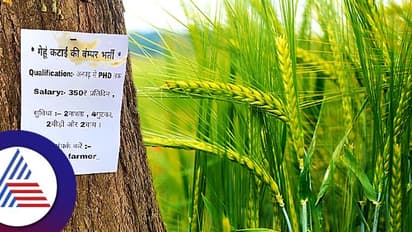 गेहूं कटाई की बंम्पर भर्ती
Qualification:- अनपढ़ से PHD तक
Salary:- 350रु प्रतिदिन,
सुविधा - 2नाश्ता, 4गुटका,
2बीड़ी और 2चाय।
संपर्क करें :-
farmer_